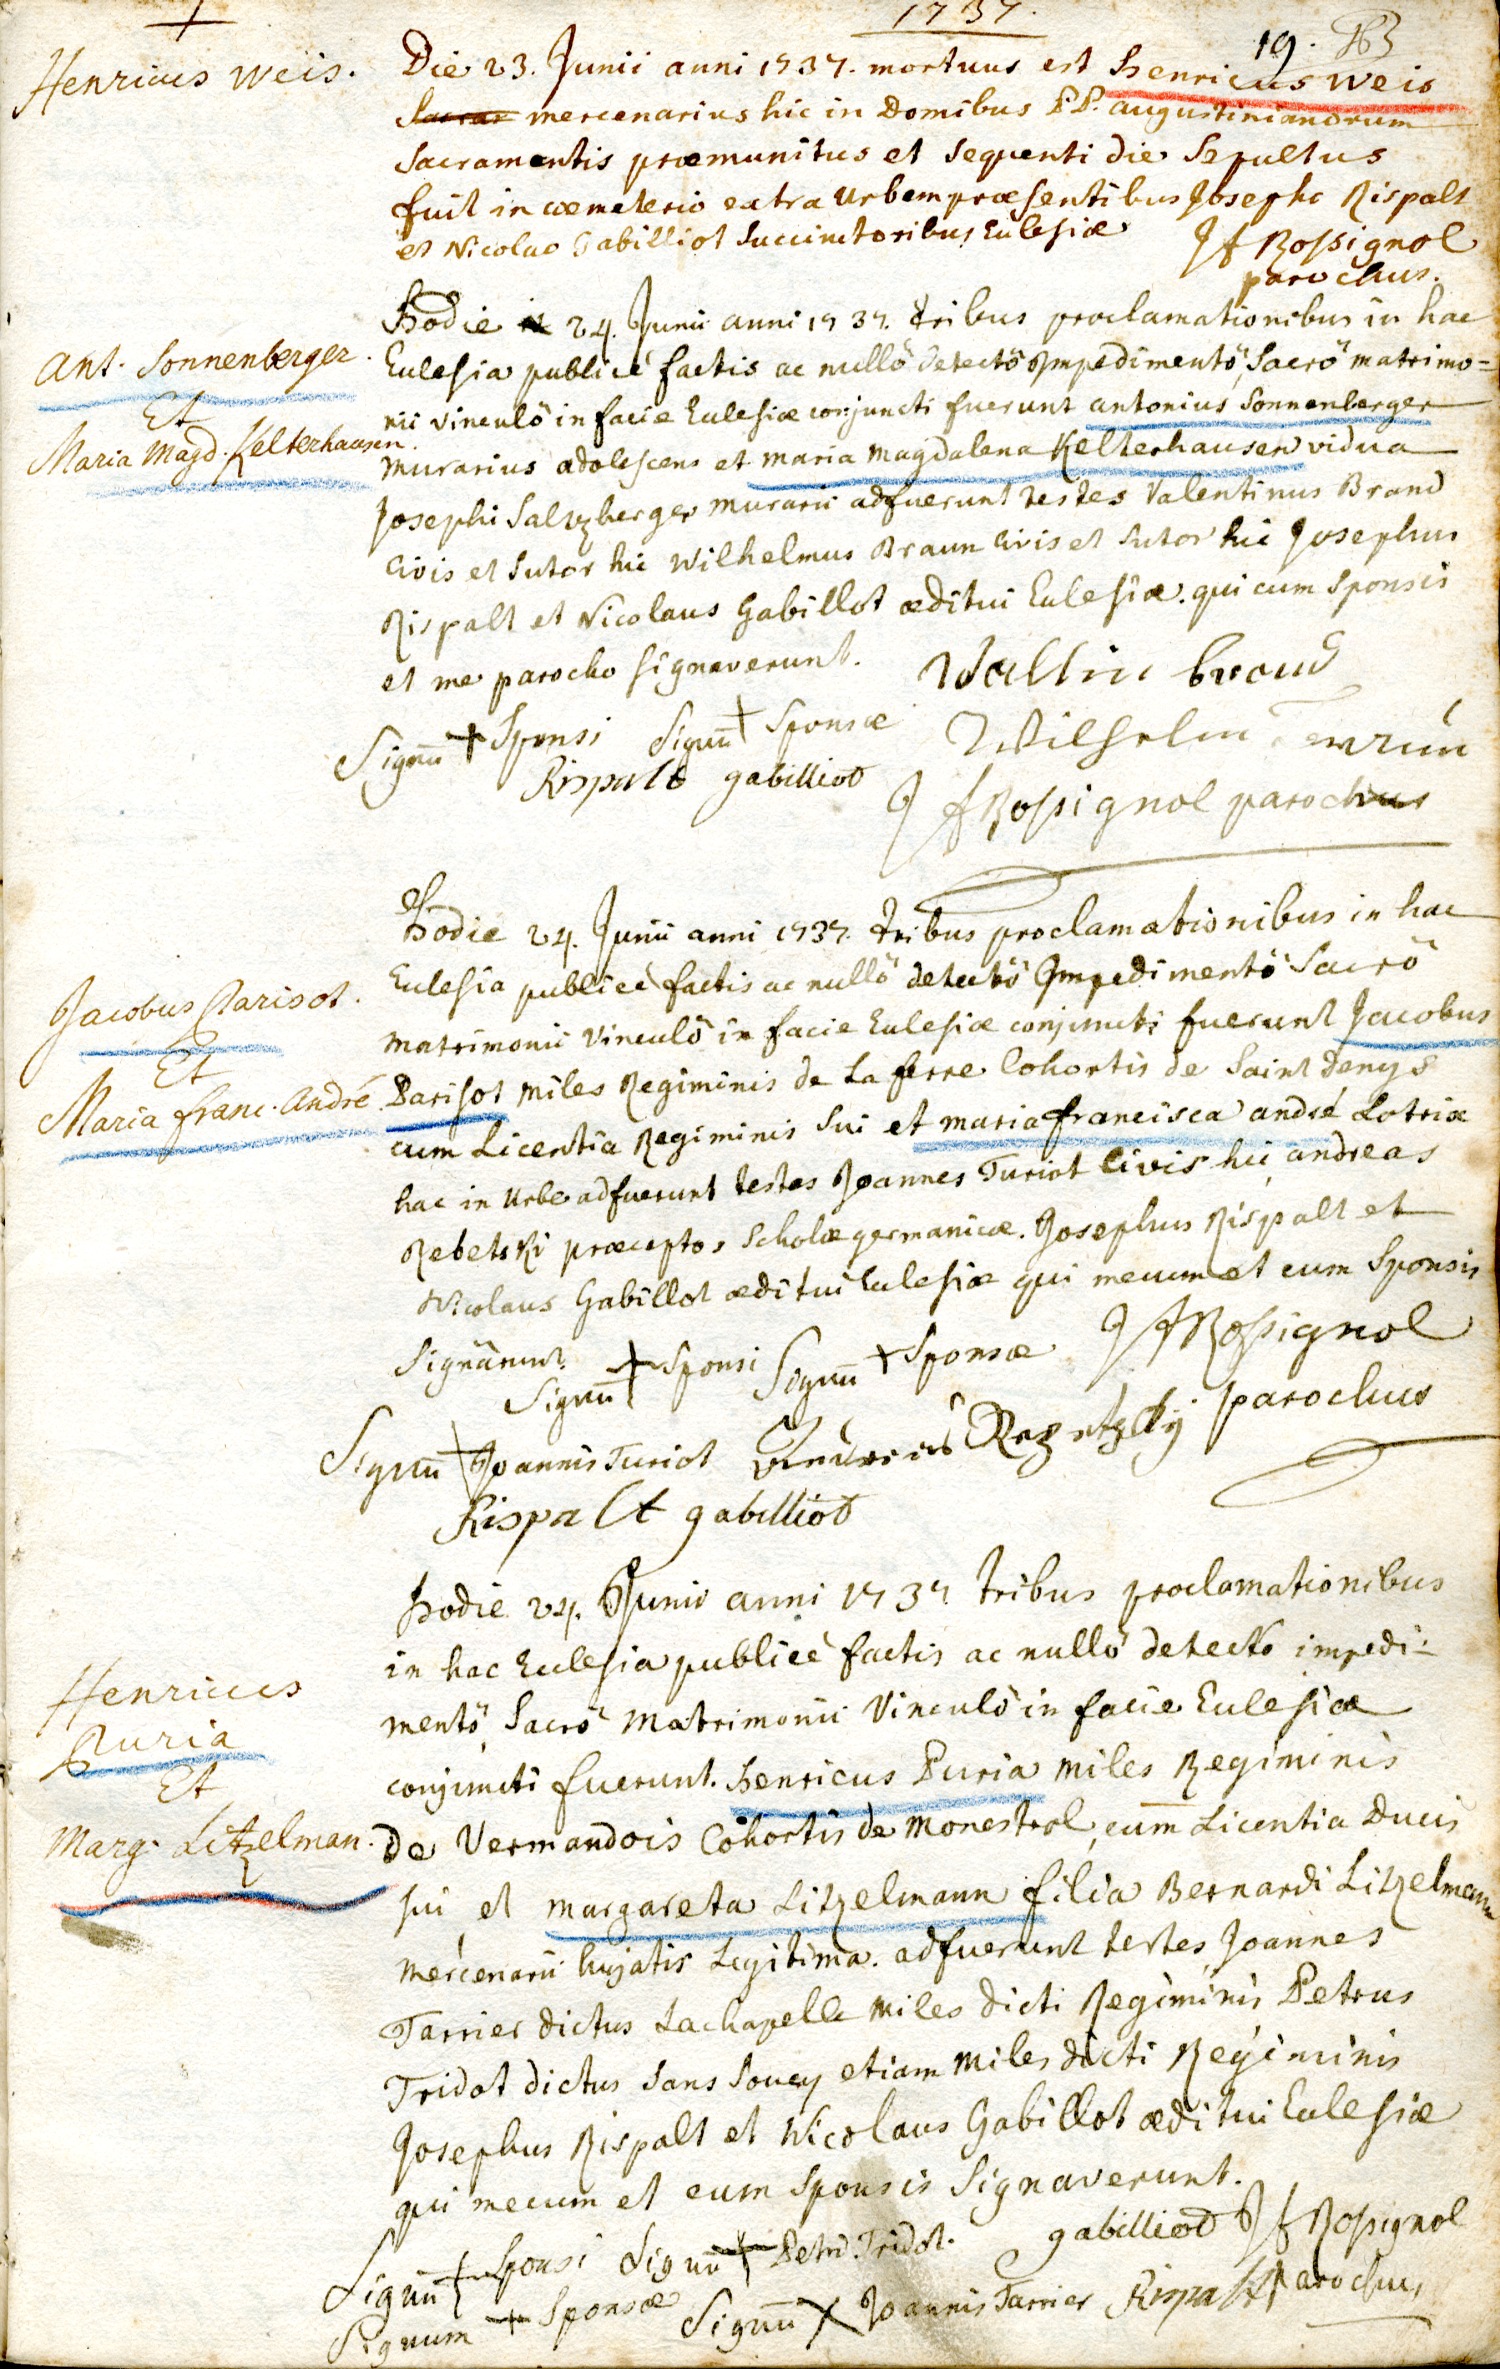 1737.
19. 163
Henricus Weis.
Die 23. Junii anni 1737. mortuus est Henricus Weis
mercenarius hic in Domibus P.P. augustinianorum
Sacramentis præmunitus et sequenti die Sepultus
fuit in cœmeterio extra Urbem præsentibus Josepho Rispalt
et Nicolao Gabilliot Succinctoribus Ecclesiæ
J f Rossignol
parochus.
Ant. Sonnenberger.
Et
Maria Magd. Kelterhausen.
Hodie 24. Junii anni 1737. tribus proclamationibus in hac
Ecclesia publicè factis ac nullô detectô Impedimentô, Sacrô matrimo=
nii vinculô in facie Ecclesiæ conjuncti fuerunt antonius Sonnenberger
murarius adolescens et maria magdalena Kelterhausen vidua
Josephi Saltzberger murarii adfuerunt testes Valentinus Brand
Civis et Sutor hic Wilhelmus Braun Civis et Sutor hic Josephus
Rispalt et Nicolaus Gabillot æditui Ecclesiæ. qui cum Sponsis
et me parocho signaverunt.
Valltin brand
Signū + Sponsi Signū + Sponsæ
Wilhelm
Rispalt gabilliot
J f Rossignol parochus
Jacobus Parisot.
Et
Maria franc. André.
Hodie 24. Junii anni 1737. tribus proclamationibus in hac
Ecclesia publicè factis ac nullô detectô Impedimentô Sacrô
matrimonii Vinculô in facie Ecclesiæ conjuncti fuerunt Jacobus
Parisot miles Regiminis de La ferre Cohortis de Saint Denys
cum Licentia Regiminis sui et maria francisca andré Lotrix
hac in Urbe adfuerunt testes Joannes Turiot Civis hic, andreas
Rebetski præceptor Scholæ germanicæ. Josephus Rispalt et
Nicolaus Gabillot æditui Ecclesiæ qui mecum et cum Sponsis
Signârunt.
Signū + Sponsi Signū + Sponsæ J f Rossignol
parochus
Signū + Joannis Turiot
Rispalt gabilliot
Henricus
Puria
Et
Marg. Litzelman.
Hodie 24. Junii anni 1737 tribus proclamationibus
in hac Ecclesia publicè factis ac nullô detecto impedi-
mentô, Sacrô Matrimonii Vinculô in facie Ecclesiæ
conjuncti fuerunt. Henricus Puria miles Regiminis
de Vermandois Cohortis de Monestrol, cum Licentia Ducis
sui et margareta Litzelmann filia Bernardi Litzelmann
mercenarii hujatis Legitima. adfuerunt testes Joannes
Tarrier dictus Lachapelle miles dicti Regiminis Petrus
Tridot dictus Sans Soucy etiam miles dicti Regiminis
Josephus Rispalt et Nicolaus Gabillot æditui Ecclesiæ
qui mecum et cum Sponsis Signaverunt.
Signū + Sponsi Signū + Petri Tridot. gabilliot J f Rossignol
Signum + Sponsæ Signū + Joannis Tarrier Rispalt parochus